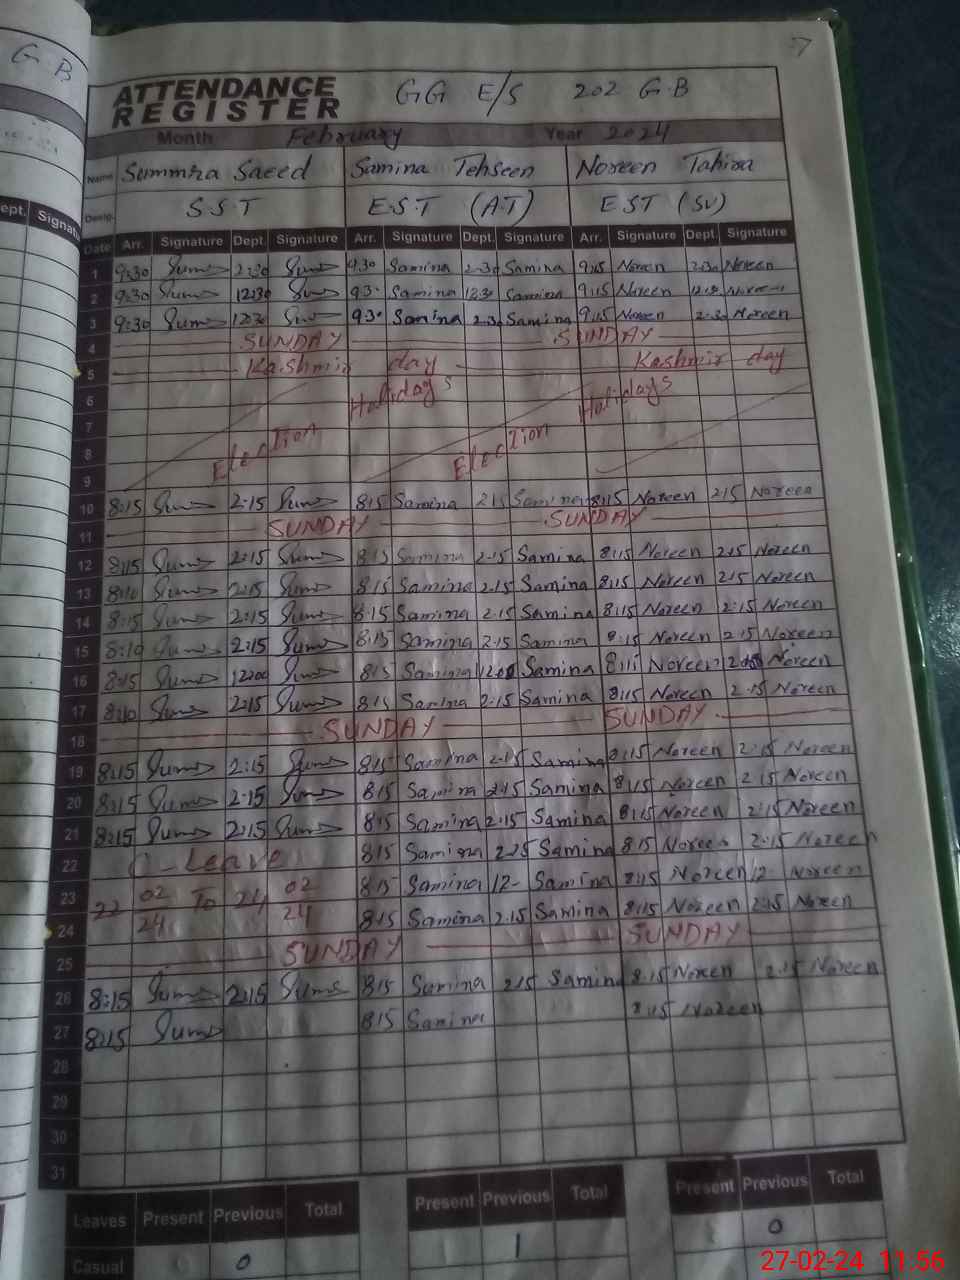 G.B
ept. Signatu
ATTENDANCE REGISTER GG E/S 202 G.B
Month February Year 2024
Name Summira Saeed Samina Tehseen Noreen Tahira
Desig. S.S.T E.S.T (A.T) EST (SV)
Date Arr. Signature Dept. Signature Arr. Signature Dept. Signature Arr. Signature Dept. Signature
1 9:30 2:30 9:30 Samina 2:30 Samina 9:15 Noreen 2:30 Noreen
2 9:30 12:30 9:30 Samina 12:30 Samina 9:15 Noreen Noreen
3 9:30 12:30 9:30 Samina 2:30 Samina 9:15 Noreen 2:30 Noreen
4 SUNDAY SUNDAY
5 Kashmir day Kashmir day
6 Holidays Holidays
7
8 Election Election
9
10 8:15 2:15 8:15 Samina 2:15 Samina 8:15 Noreen 2:15 Noreen
11 SUNDAY SUNDAY
12 8:15 2:15 8:15 Samina 2:15 Samina 8:15 Noreen 2:15 Noreen
13 8:10 2:15 8:15 Samina 2:15 Samina 8:15 Noreen 2:15 Noreen
14 8:15 2:15 8:15 Samina 2:15 Samina 8:15 Noreen 2:15 Noreen
15 8:10 2:15 8:15 Samina 2:15 Samina 8:15 Noreen 2:15 Noreen
16 8:15 12:00 8:15 Samina Samina 8:15 Noreen Noreen
17 8:10 2:15 8:15 Samina 2:15 Samina 8:15 Noreen 2:15 Noreen
18 SUNDAY SUNDAY
19 8:15 2:15 8:15 Samina 2:15 Samina 8:15 Noreen 2:15 Noreen
20 8:15 2:15 8:15 Samina 2:15 Samina 8:15 Noreen 2:15 Noreen
21 8:15 2:15 8:15 Samina 2:15 Samina 8:15 Noreen 2:15 Noreen
22 C-Leave 8:15 Samina 2:15 Samina 8:15 Noreen 2:15 Noreen
23 22 02/24 To 24 02/24 8:15 Samina 12- Samina 8:15 Noreen 12- Noreen
24 8:15 Samina 2:15 Samina 8:15 Noreen 2:15 Noreen
25 SUNDAY SUNDAY
26 8:15 2:15 8:15 Samina 2:15 Samina 8:15 Noreen 2:15 Noreen
27 8:15 8:15 Samina 8:15 Noreen
28
29
30
31
Leaves Present Previous Total Present Previous Total Present Previous Total
Casual 0 1 0
27-02-24 11:56